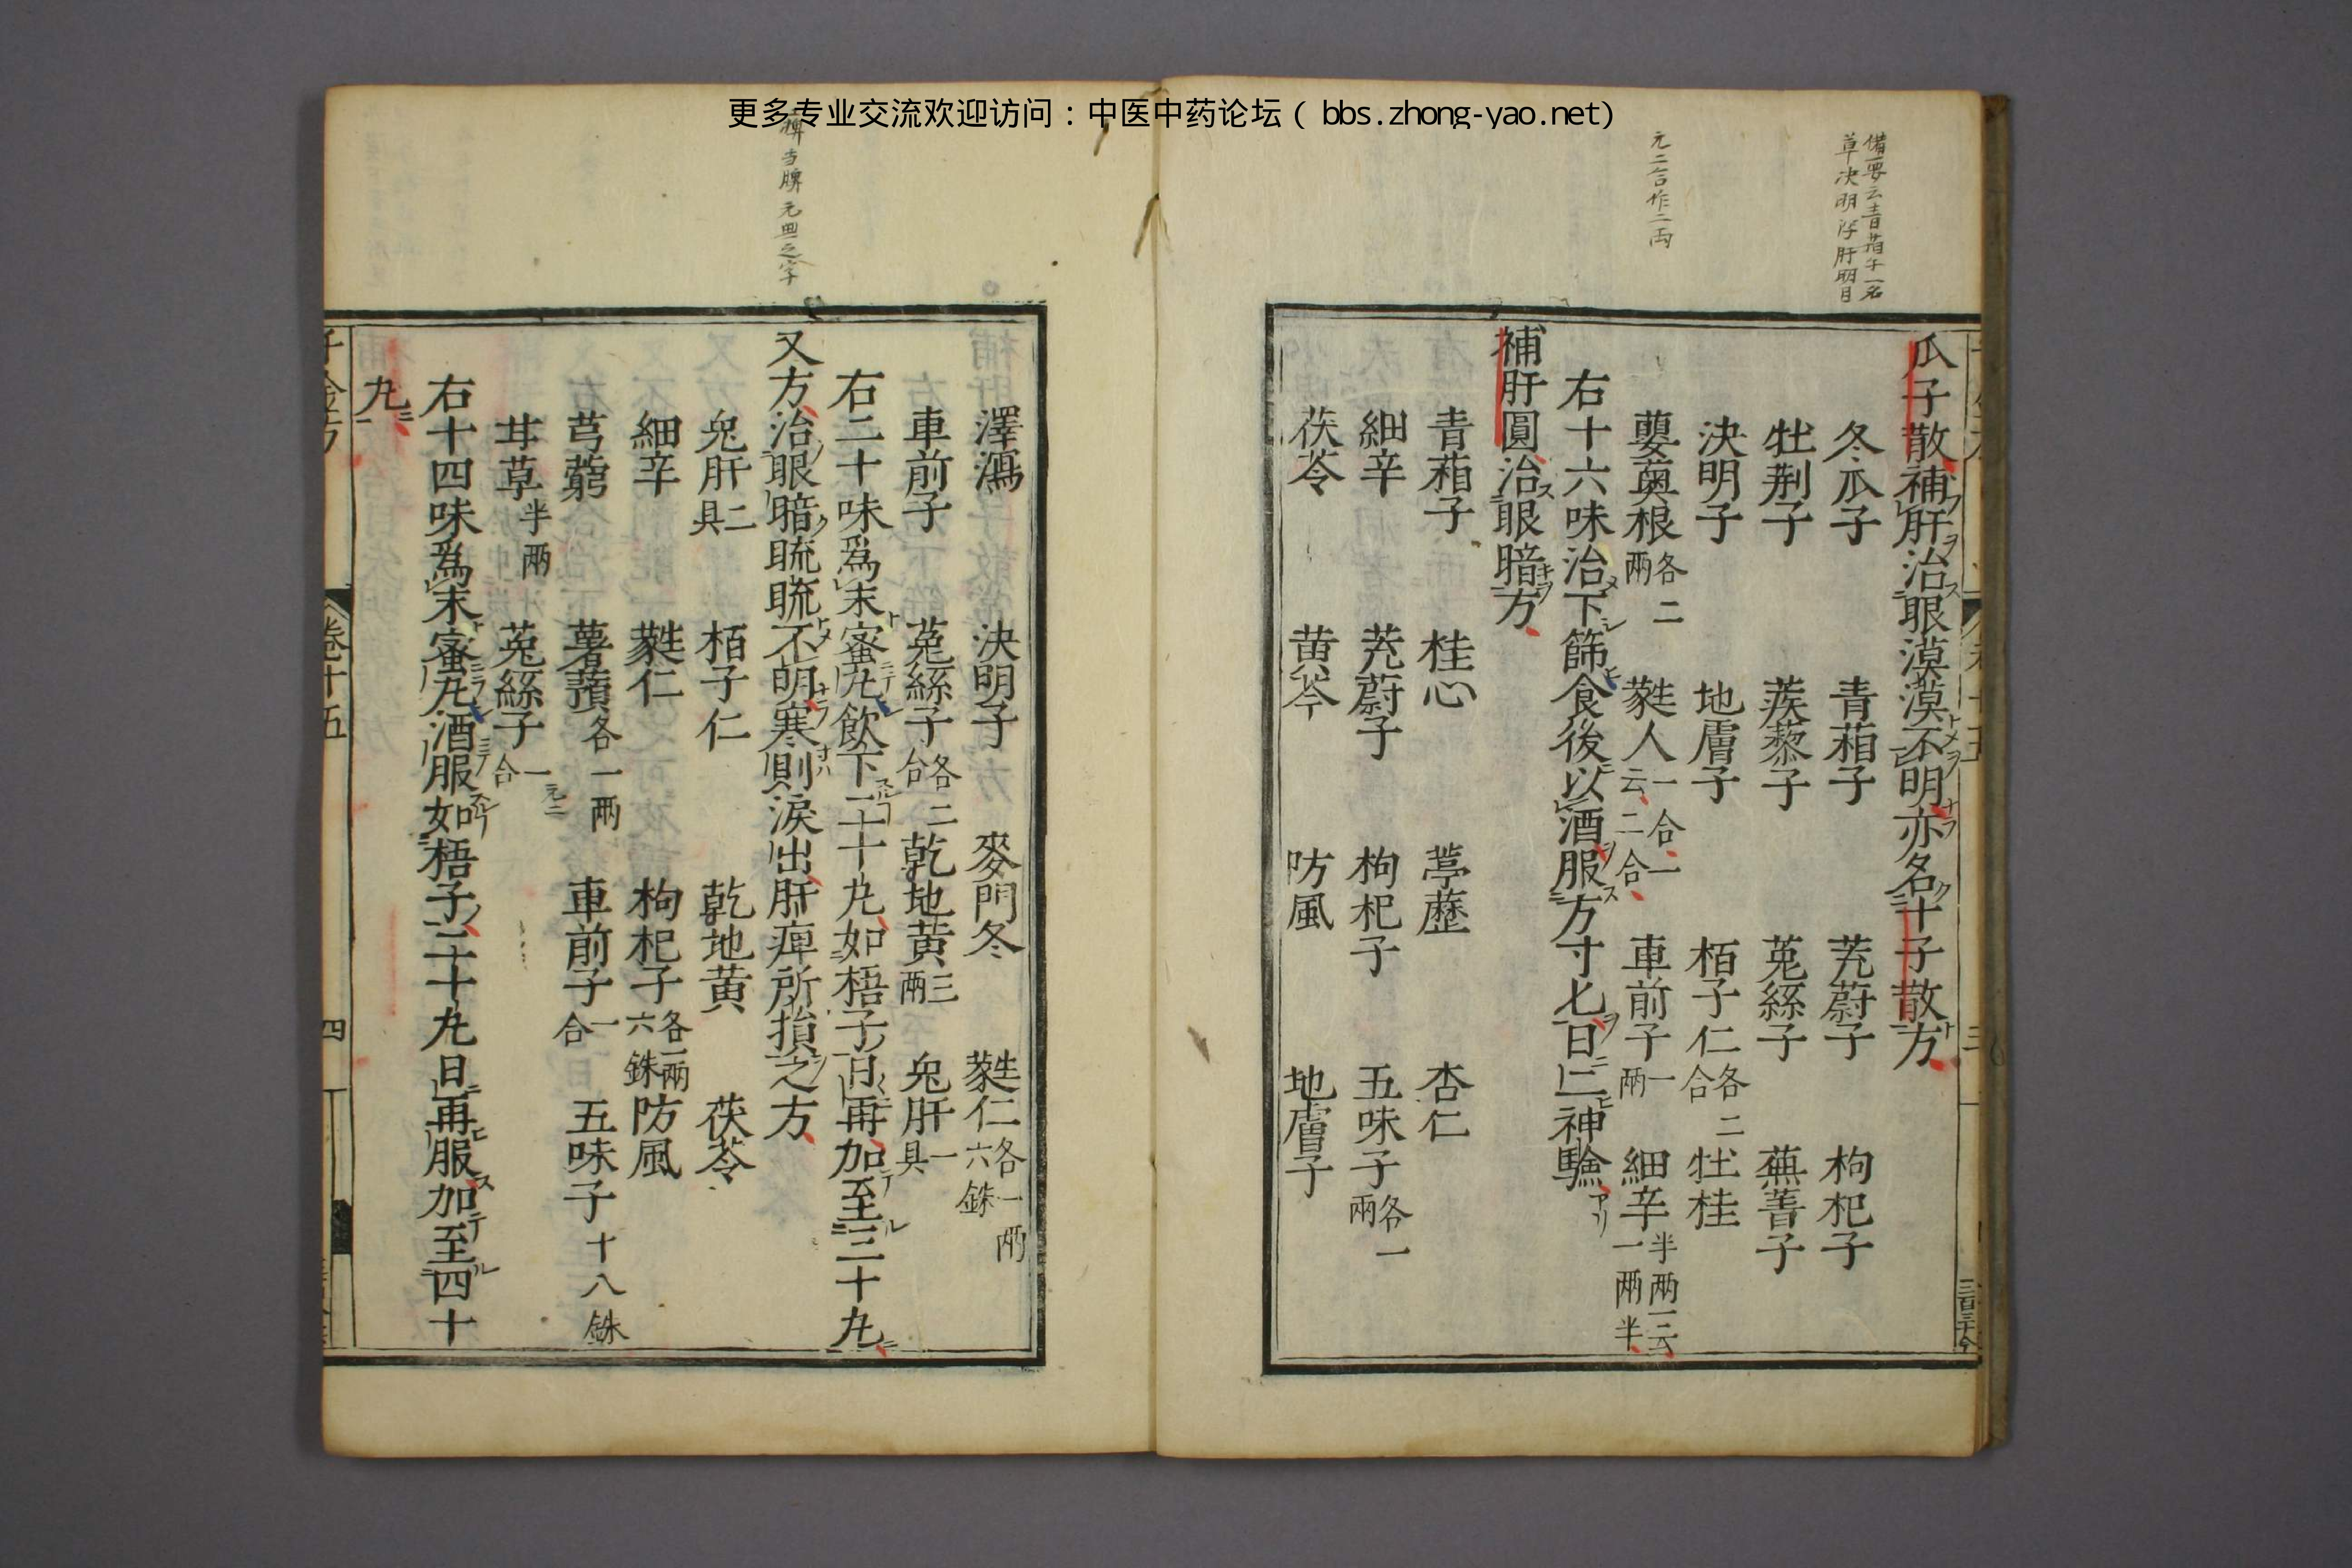 更多专业交流欢迎访问：中医中药论坛（bbs.zhong-yao.net）
備要云青葙子一名
草决明浮肝明目
元二合作二両
瓜子散補肝治眼漠漠不明亦名十子散方
冬瓜子　青葙子　茺蔚子　枸杞子
牡荆子　蒺藜子　菟絲子　蕪菁子
決明子　地膚子　栢子仁各二合　牡桂
蘡薁根各二兩　蕤人一合一云二合　車前子一兩　細辛半兩一云一兩半
右十六味治下篩食後以酒服方寸匕日二神驗
補肝圓治眼暗方
青葙子　桂心　葶藶　杏仁
細辛　茺蔚子　枸杞子　五味子各一兩
茯苓　黄芩　防風　地膚子
澤瀉　決明子　麥門冬　蕤仁各一兩六銖
車前子　菟絲子各二合　乾地黄三兩　兔肝一具
右二十味爲末蜜丸飲下二十丸如梧子日再加至三十丸
又方治眼暗䀮䀮不明寒則淚出肝痺所損之方
兔肝二具　栢子仁　乾地黄　茯苓
細辛　蕤仁　枸杞子各一兩六銖　防風
芎藭　薯蕷各一兩　車前子一合　五味子十八銖
甘草半兩　菟絲子一合
右十四味爲末蜜丸酒服如梧子二十丸日再服加至四十
丸
千金方　卷十五　四